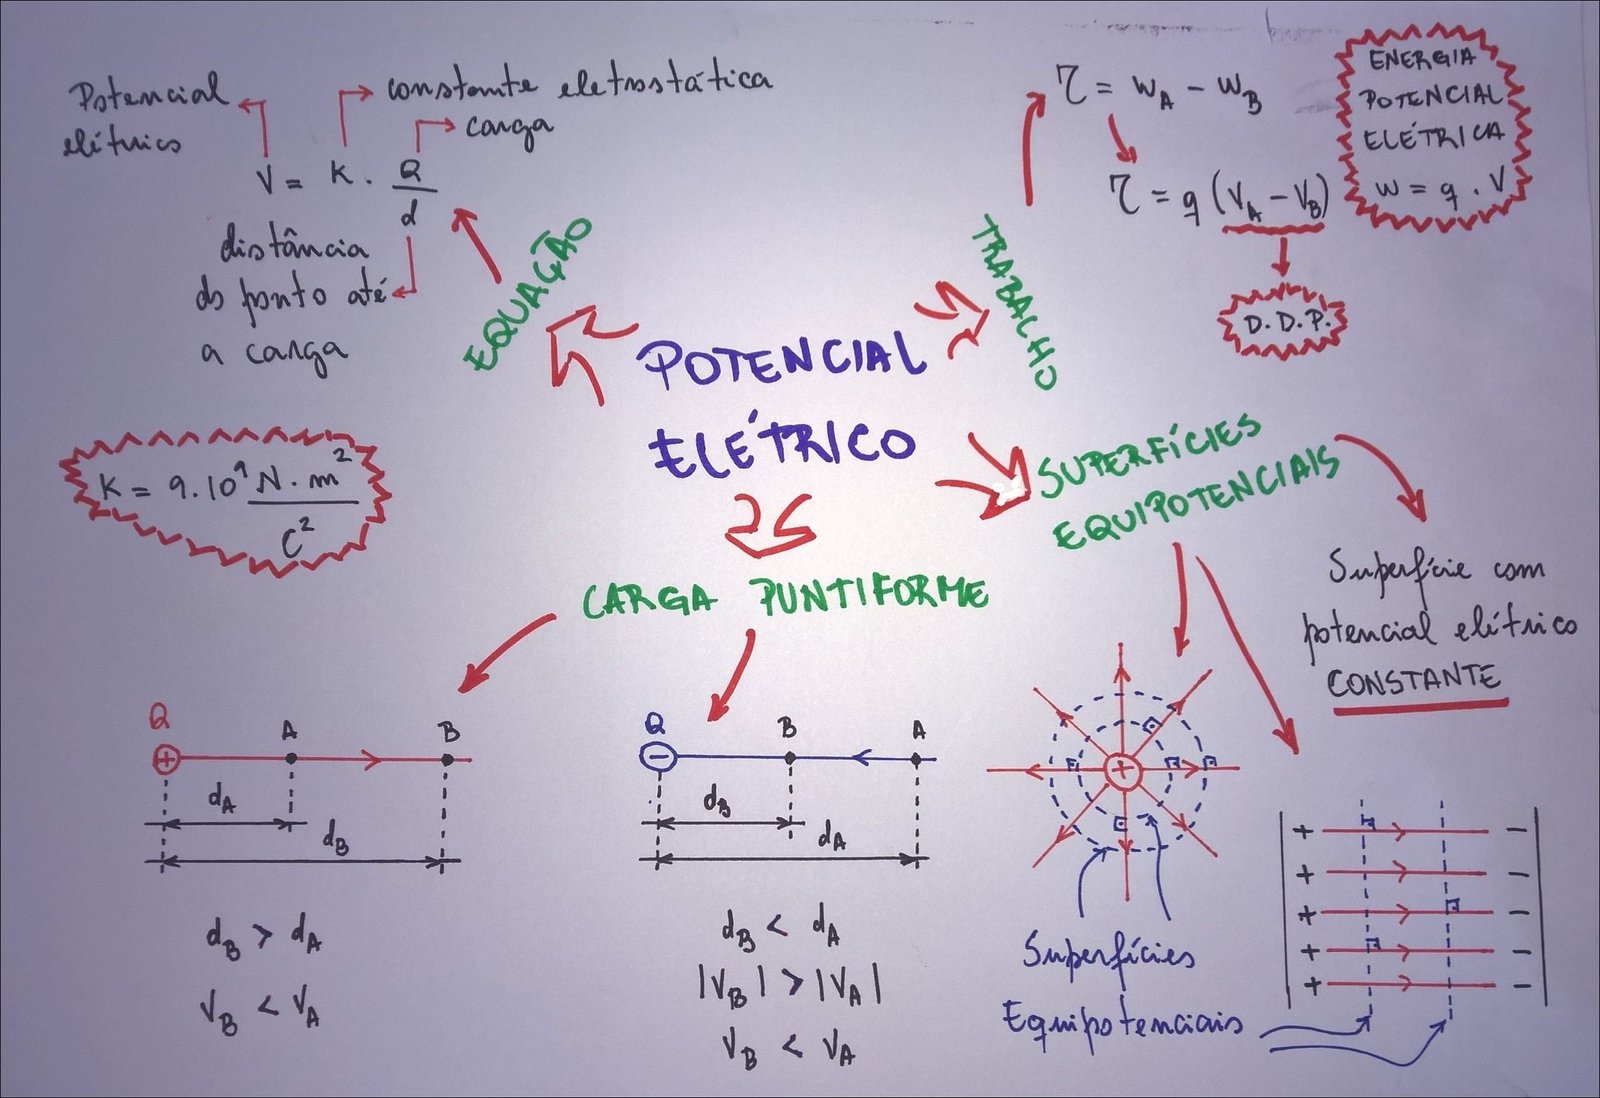 POTENCIAL
ELÉTRICO
EQUAÇÃO
Potencial
elétrico
constante eletrostática
carga
V = K . Q/d
distância
do ponto até
a carga
K = 9.10⁹ N.m²/C²
TRABALHO
τ = WA - WB
τ = q (VA - VB)
D.D.P.
ENERGIA
POTENCIAL
ELÉTRICA
W = q . V
SUPERFÍCIES
EQUIPOTENCIAIS
Superfície com
potencial elétrico
CONSTANTE
CARGA PUNTIFORME
Q A B
+
dA
dB
dB > dA
VB < VA
Q B A
-
dB
dA
dB < dA
|VB| > |VA|
VB < VA
+
Superfícies
Equipotenciais
+ -
+ -
+ -
+ -
+ -